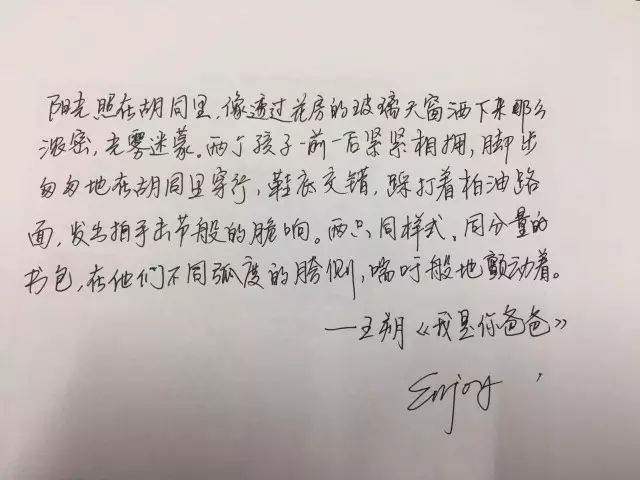 阳光照在胡同里,像透过花房的玻璃天窗洒下来那么
浓密,光雾迷蒙。两个孩子一前一后紧紧相拥,脚步
匆匆地在胡同里穿行,鞋底交错,踩打着柏油路
面,发出拍手击节般的脆响。两只同样式、同分量的
书包,在他们不同弧度的胯侧,喘吁般地颤动着。
—王朔《我是你爸爸》
Enjoy